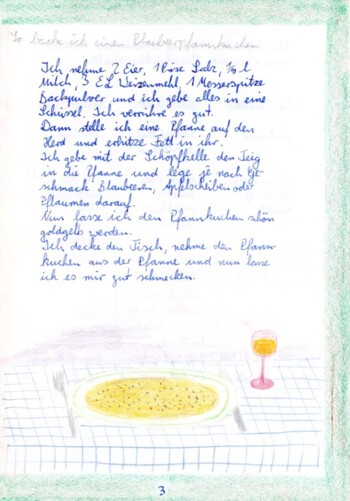 So backe ich einen Blaubeerpfannkuchen
Ich nehme 2 Eier, 1 Prise Salz, 1/8 l
Milch, 3 EL Weizenmehl, 1 Messerspitze
Backpulver und ich gebe alles in eine
Schüssel. Ich verrühre es gut.
Dann stelle ich eine Pfanne auf den
Herd und erhitze Fett in ihr.
Ich gebe mit der Schöpfkelle den Teig
in die Pfanne und lege je nach Ge-
schmack Blaubeeren, Apfelscheiben oder
Pflaumen darauf.
Nun lasse ich den Pfannkuchen schön
goldgelb werden.
Ich decke den Tisch, nehme den Pfann-
kuchen aus der Pfanne und nun lasse
ich es mir gut schmecken.
3